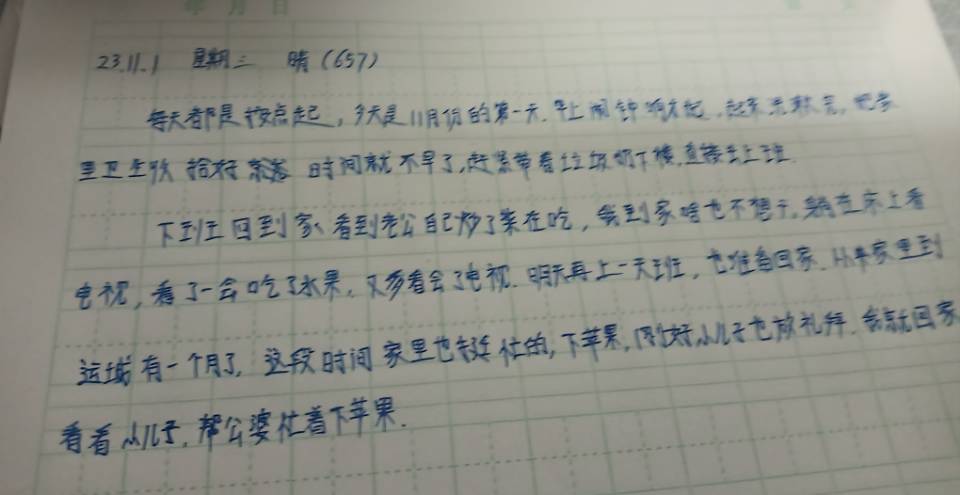 年 月 日
23.11.1 星期三 晴(657)
每天都是按点起,今天是11月份的第一天.早上闹钟响才起,起来洗漱完,把家
里卫生收拾好 时间就不早了,赶紧带着垃圾扔下楼,直接去上班.
下班回到家、看到老公自己炒了菜在吃,我到家啥也不想干,躺在床上看
电视,看了一会吃了水果,又多看会了电视.明天再上一天班,也准备回家.从来家里到
运城有一个月了,这段时间家里也挺忙的,下苹果,刚好小儿子也放礼拜.我就回家
看看小儿子,帮公婆忙着下苹果.